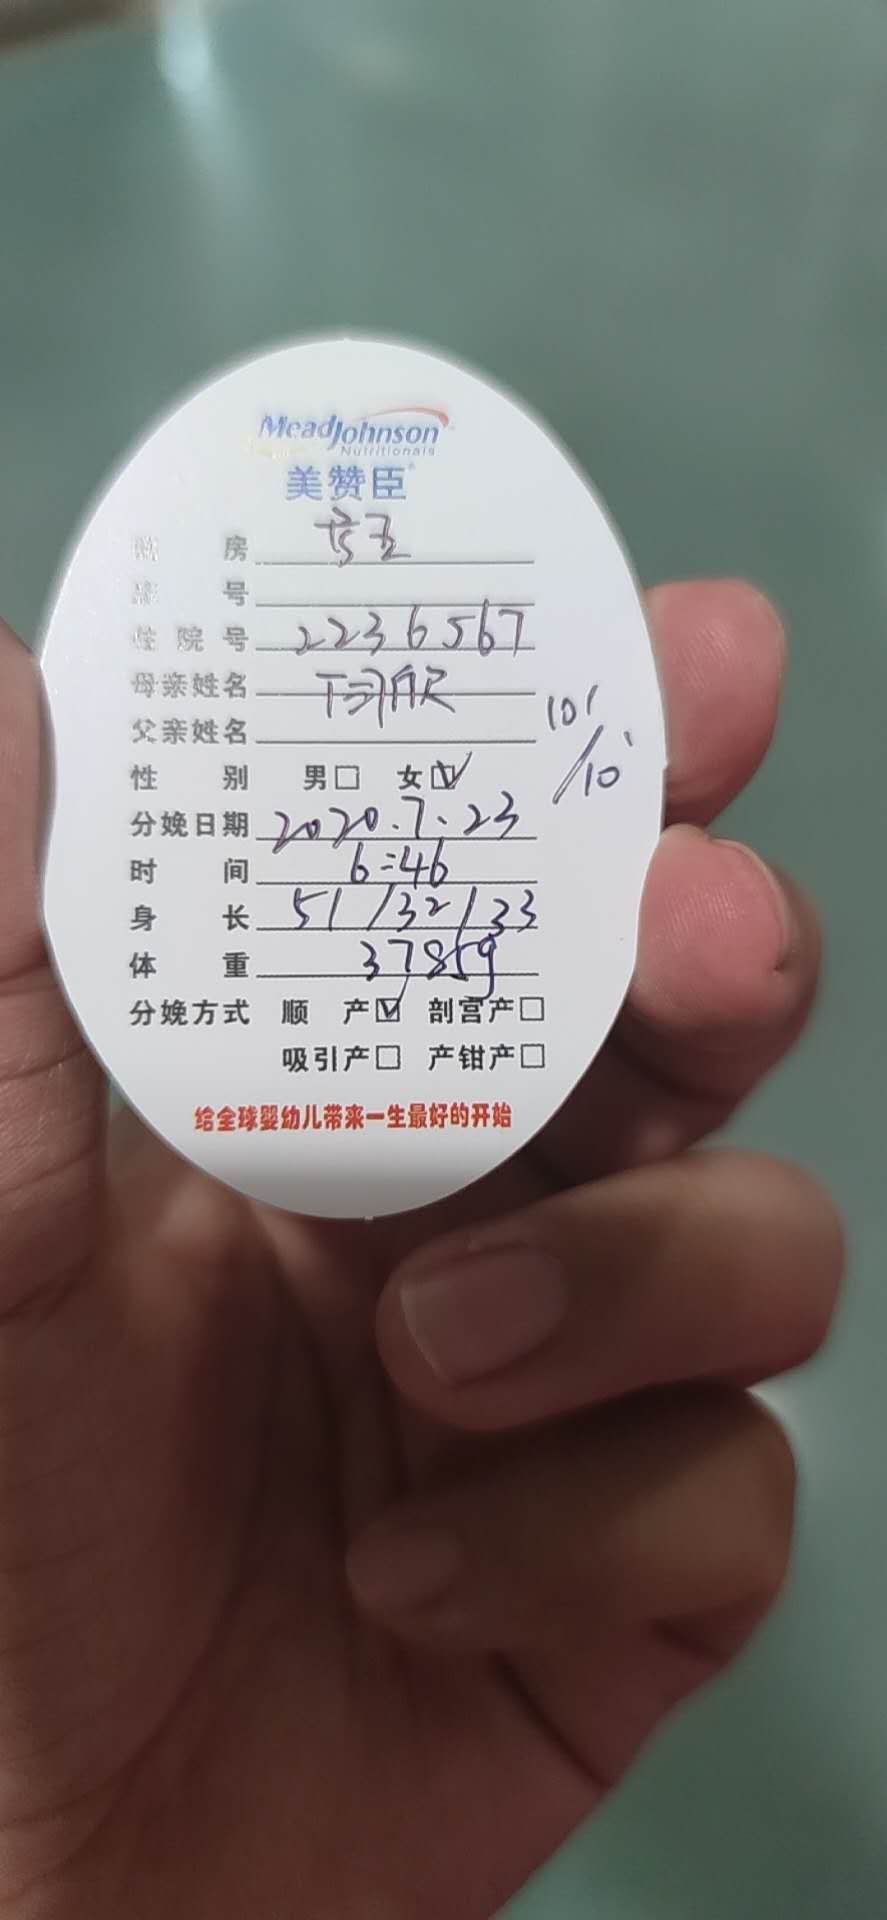 MeadJohnson
Nutritionals
美赞臣
房
号
住院号 2236567
母亲姓名
父亲姓名
性别 男□ 女☑
10'/10'
分娩日期 2020.7.23
时间 6:46
身长 51/32/33
体重 3785g
分娩方式 顺产☑ 剖宫产□
吸引产□ 产钳产□
给全球婴幼儿带来一生最好的开始